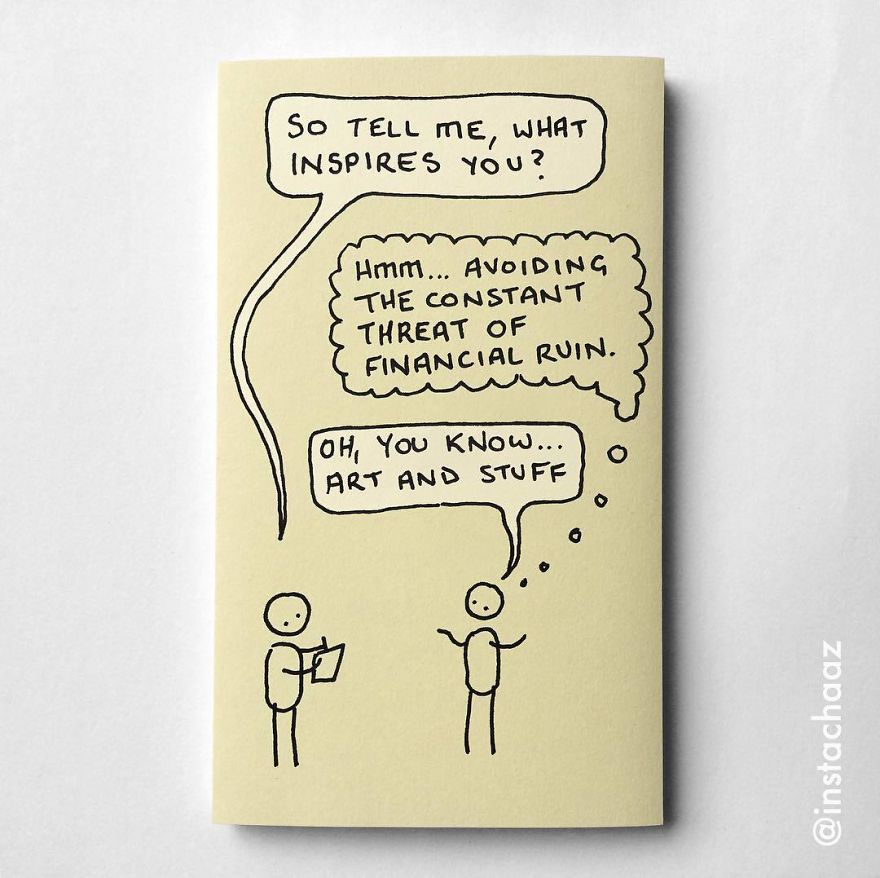 SO TELL ME, WHAT
INSPIRES YOU?
Hmm... AVOIDING
THE CONSTANT
THREAT OF
FINANCIAL RUIN.
OH, YOU KNOW...
ART AND STUFF
@instachaaz